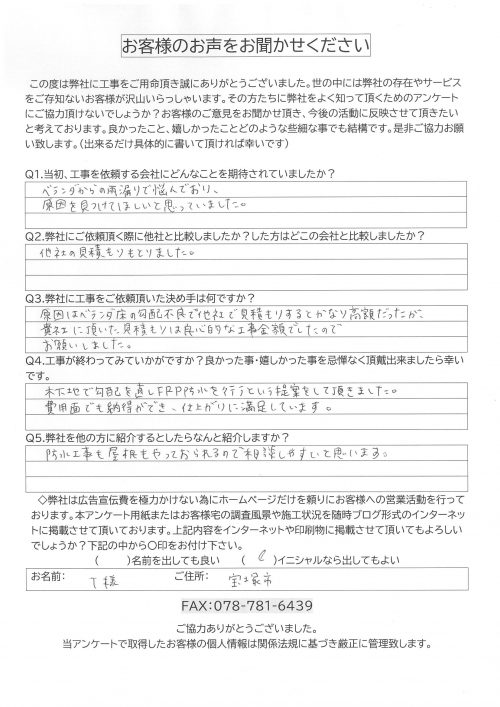 お客様のお声をお聞かせください
この度は弊社に工事をご用命頂き誠にありがとうございました。世の中には弊社の存在やサービス
をご存知ないお客様が沢山いらっしゃいます。その方たちに弊社をよく知って頂くためのアンケート
にご協力頂けないでしょうか?お客様のご意見をお聞かせ頂き、今後の活動に反映させて頂きたい
と考えております。良かったこと、嬉しかったことどのような些細な事でも結構です。是非ご協力お願
い致します。(出来るだけ具体的に書いて頂ければ幸いです)
Q1.当初、工事を依頼する会社にどんなことを期待されていましたか?
ベランダからの雨漏りで悩んでおり、
原因を見つけてほしいと思っていました。
Q2.弊社にご依頼頂く際に他社と比較しましたか?した方はどこの会社と比較しましたか?
他社の見積もりもとりました。
Q3.弊社に工事をご依頼頂いた決め手は何ですか?
原因はベランダ床の勾配不良で他社で見積もりするとかなり高額だったが、
貴社に頂いた見積もりは良心的な工事金額でしたので
お願いしました。
Q4.工事が終わってみていかがですか?良かった事・嬉しかった事を忌憚なく頂戴出来ましたら幸い
です。
木下地で勾配を直しFRP防水を行うという提案をして頂きました。
費用面でも納得ができ、仕上がりに満足しています。
Q5.弊社を他の方に紹介するとしたらなんと紹介しますか?
防水工事も屋根もやっておられるので相談しやすいと思います。
◇弊社は広告宣伝費を極力かけない為にホームページだけを頼りにお客様への営業活動を行って
おります。本アンケート用紙またはお客様宅の調査風景や施工状況を随時ブログ形式のインターネッ
トに掲載させて頂いております。上記内容をインターネットや印刷物に掲載させて頂いてもよろしい
でしょうか?下記の中から〇印をお付け下さい。
( )名前を出しても良い ( )イニシャルなら出してもよい
お名前: T様 ご住所: 宝塚市
FAX:078-781-6439
ご協力ありがとうございました。
当アンケートで取得したお客様の個人情報は関係法規に基づき厳正に管理致します。